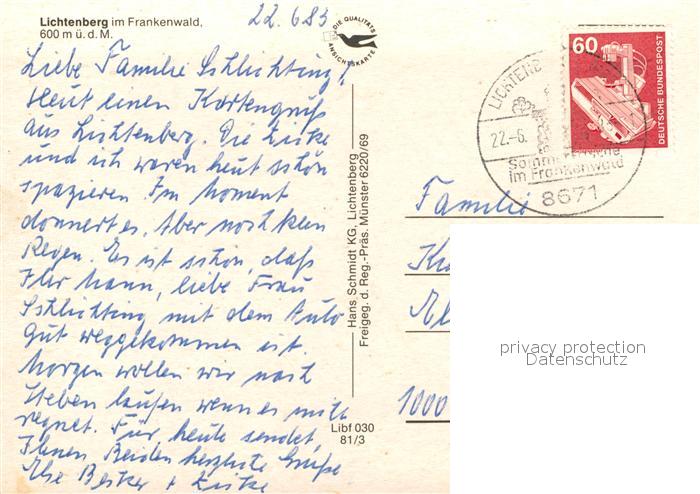 Lichtenberg im Frankenwald,
600 m ü. d. M.
22.6.83
DIE QUALITÄTS
ANSICHTSKARTE
Liebe Familie Schlichting!
Heut einen Kartengruß
aus Lichtenberg. Die
und ich waren heut schön
spazieren. Im Moment
donnert es. Aber noch kein
Regen. Es ist schön, daß
Ihr Mann, liebe Frau
Schlichting mit dem Auto
gut weggekommen ist.
Morgen wollen wir nach
Steben laufen wenn es nicht
regnet. Für heute sendet,
Ihnen Beiden herzliche Grüße
Hans Schmidt KG, Lichtenberg
Freigeg. d. Reg.-Präs. Münster 6220/69
Libf 030
81/3
60
DEUTSCHE BUNDESPOST
22.-6.
im Frankenwald
8671
Familie
1000
privacy protection
Datenschutz